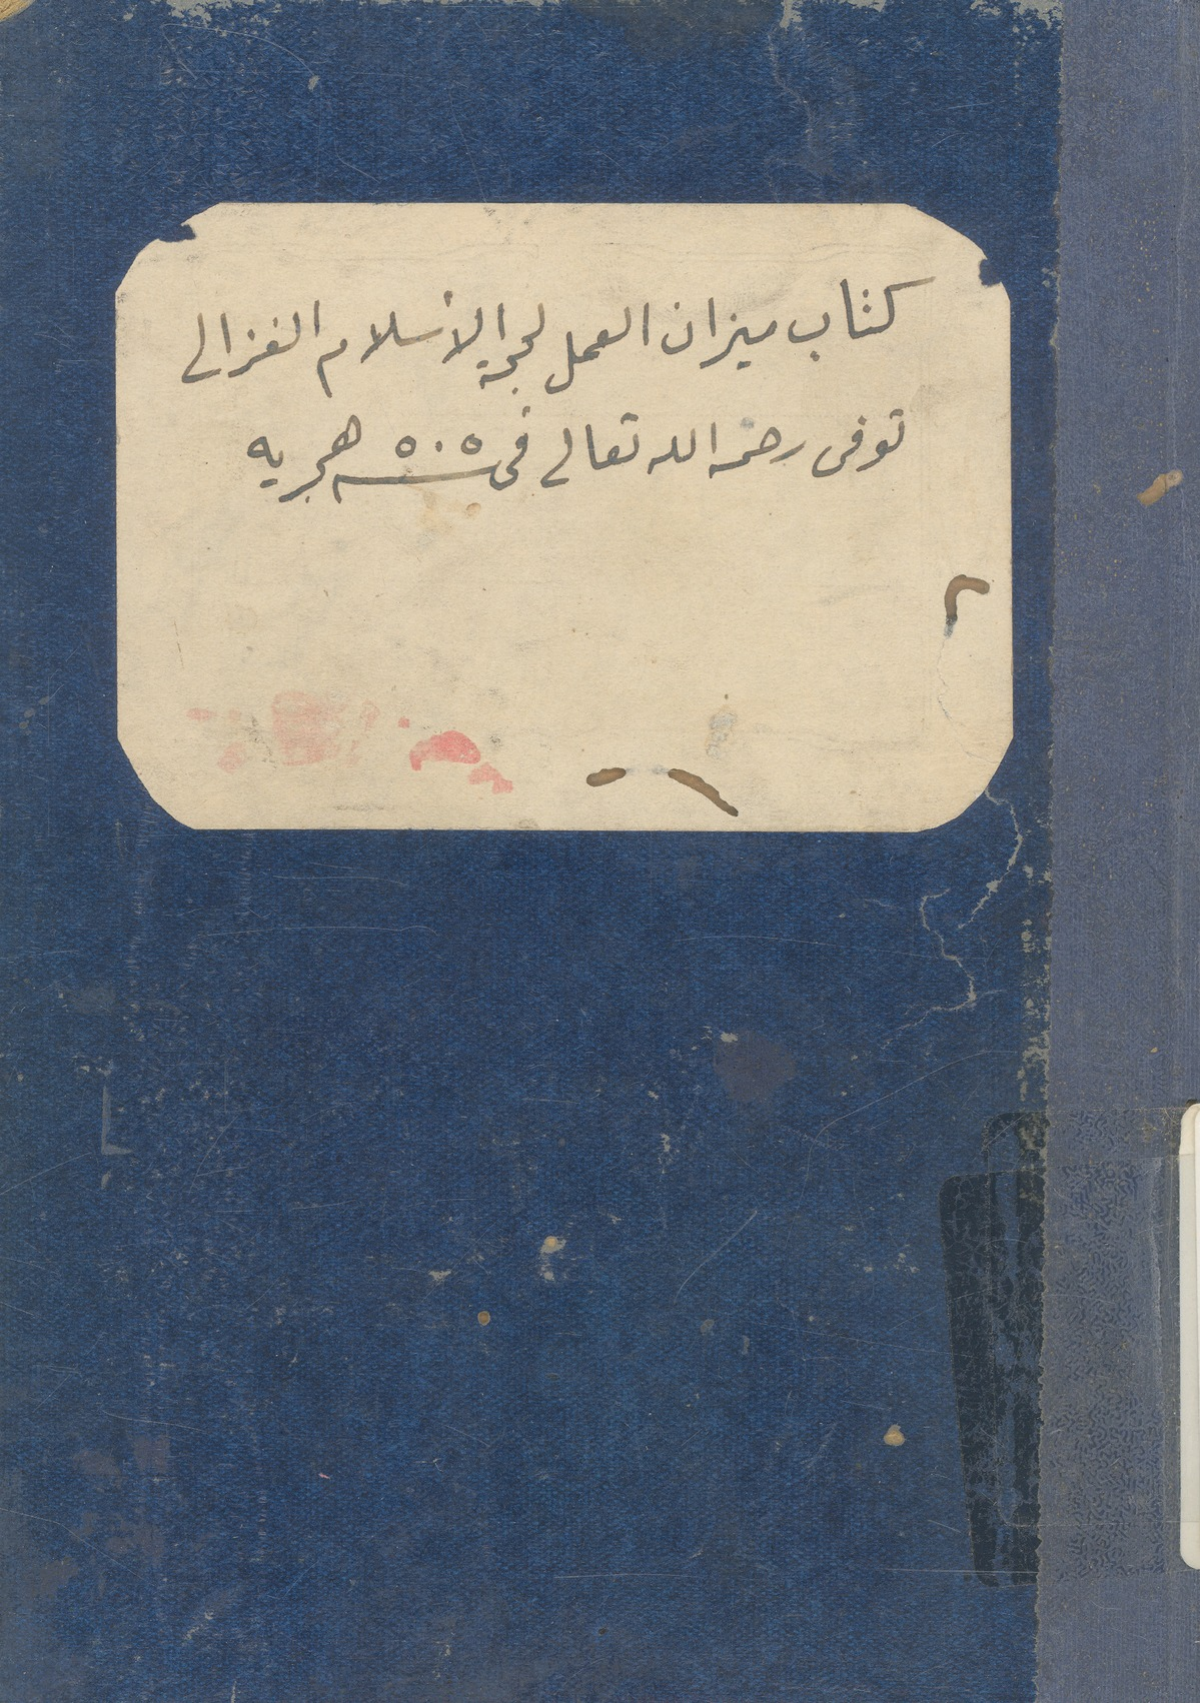 كتاب ميزان العمل لحجة الأسلام الغزالى
توفى رحمه الله تعالى فى سنة ٥٠٥ هجريه